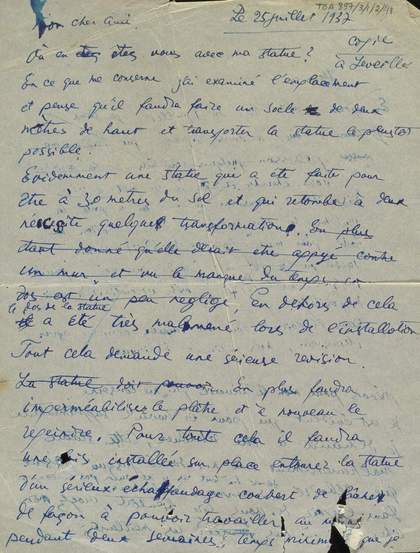 TGA 897/3/1/2/18
Mon cher Ami.
Le 25 juillet 1937
copie
à Leveillé
Où en êtes êtes vous avec ma statue ?
En ce que me concerne j'ai examiné l'emplacement
et pense qu'il faudra faire un socle de deux
mètres de haut et transporter la statue le plustot
possible.
Evidemment une statue que a ete faite pour
être à 30 metres du sol et qui retombe à deux
nessecite quelques transformations. En plus
étant donné qu'elle devait etre appuyé contre
un mur, et vu le manque du temps, son
dos est un peu neglige En dehors de cela
le dos de la statue
a été très malmené lors de l'installation
Tout cela demande une serieuse revision.
La statue doit pouvoir En plus faudra
imperméabiliser le plâtre et a nouveau le
repeindre. Pour tout cela il faudra
une fois installée sur place entourer la statue
d'un sérieux échaffaudage couvert de
de façon à pouvoir travailler au
pendant deux semaines, temps minimum que je